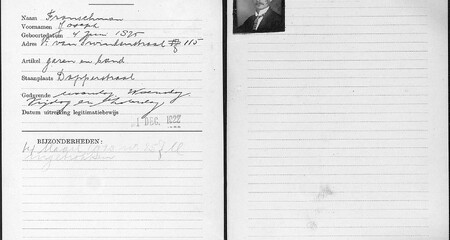 Naam Franschman
Voornamen Joseph
Geboortedatum 4 Juni 1895
Adres v. Swindenstraat 115
Artikel garen en band
Staanplaats Dapperstraat
Gedurende maandag Woensdag
Vrijdag en Zaterdag
Datum uitreiking legitimatiebewijs
1 DEC. 1922
BIJZONDERHEDEN: